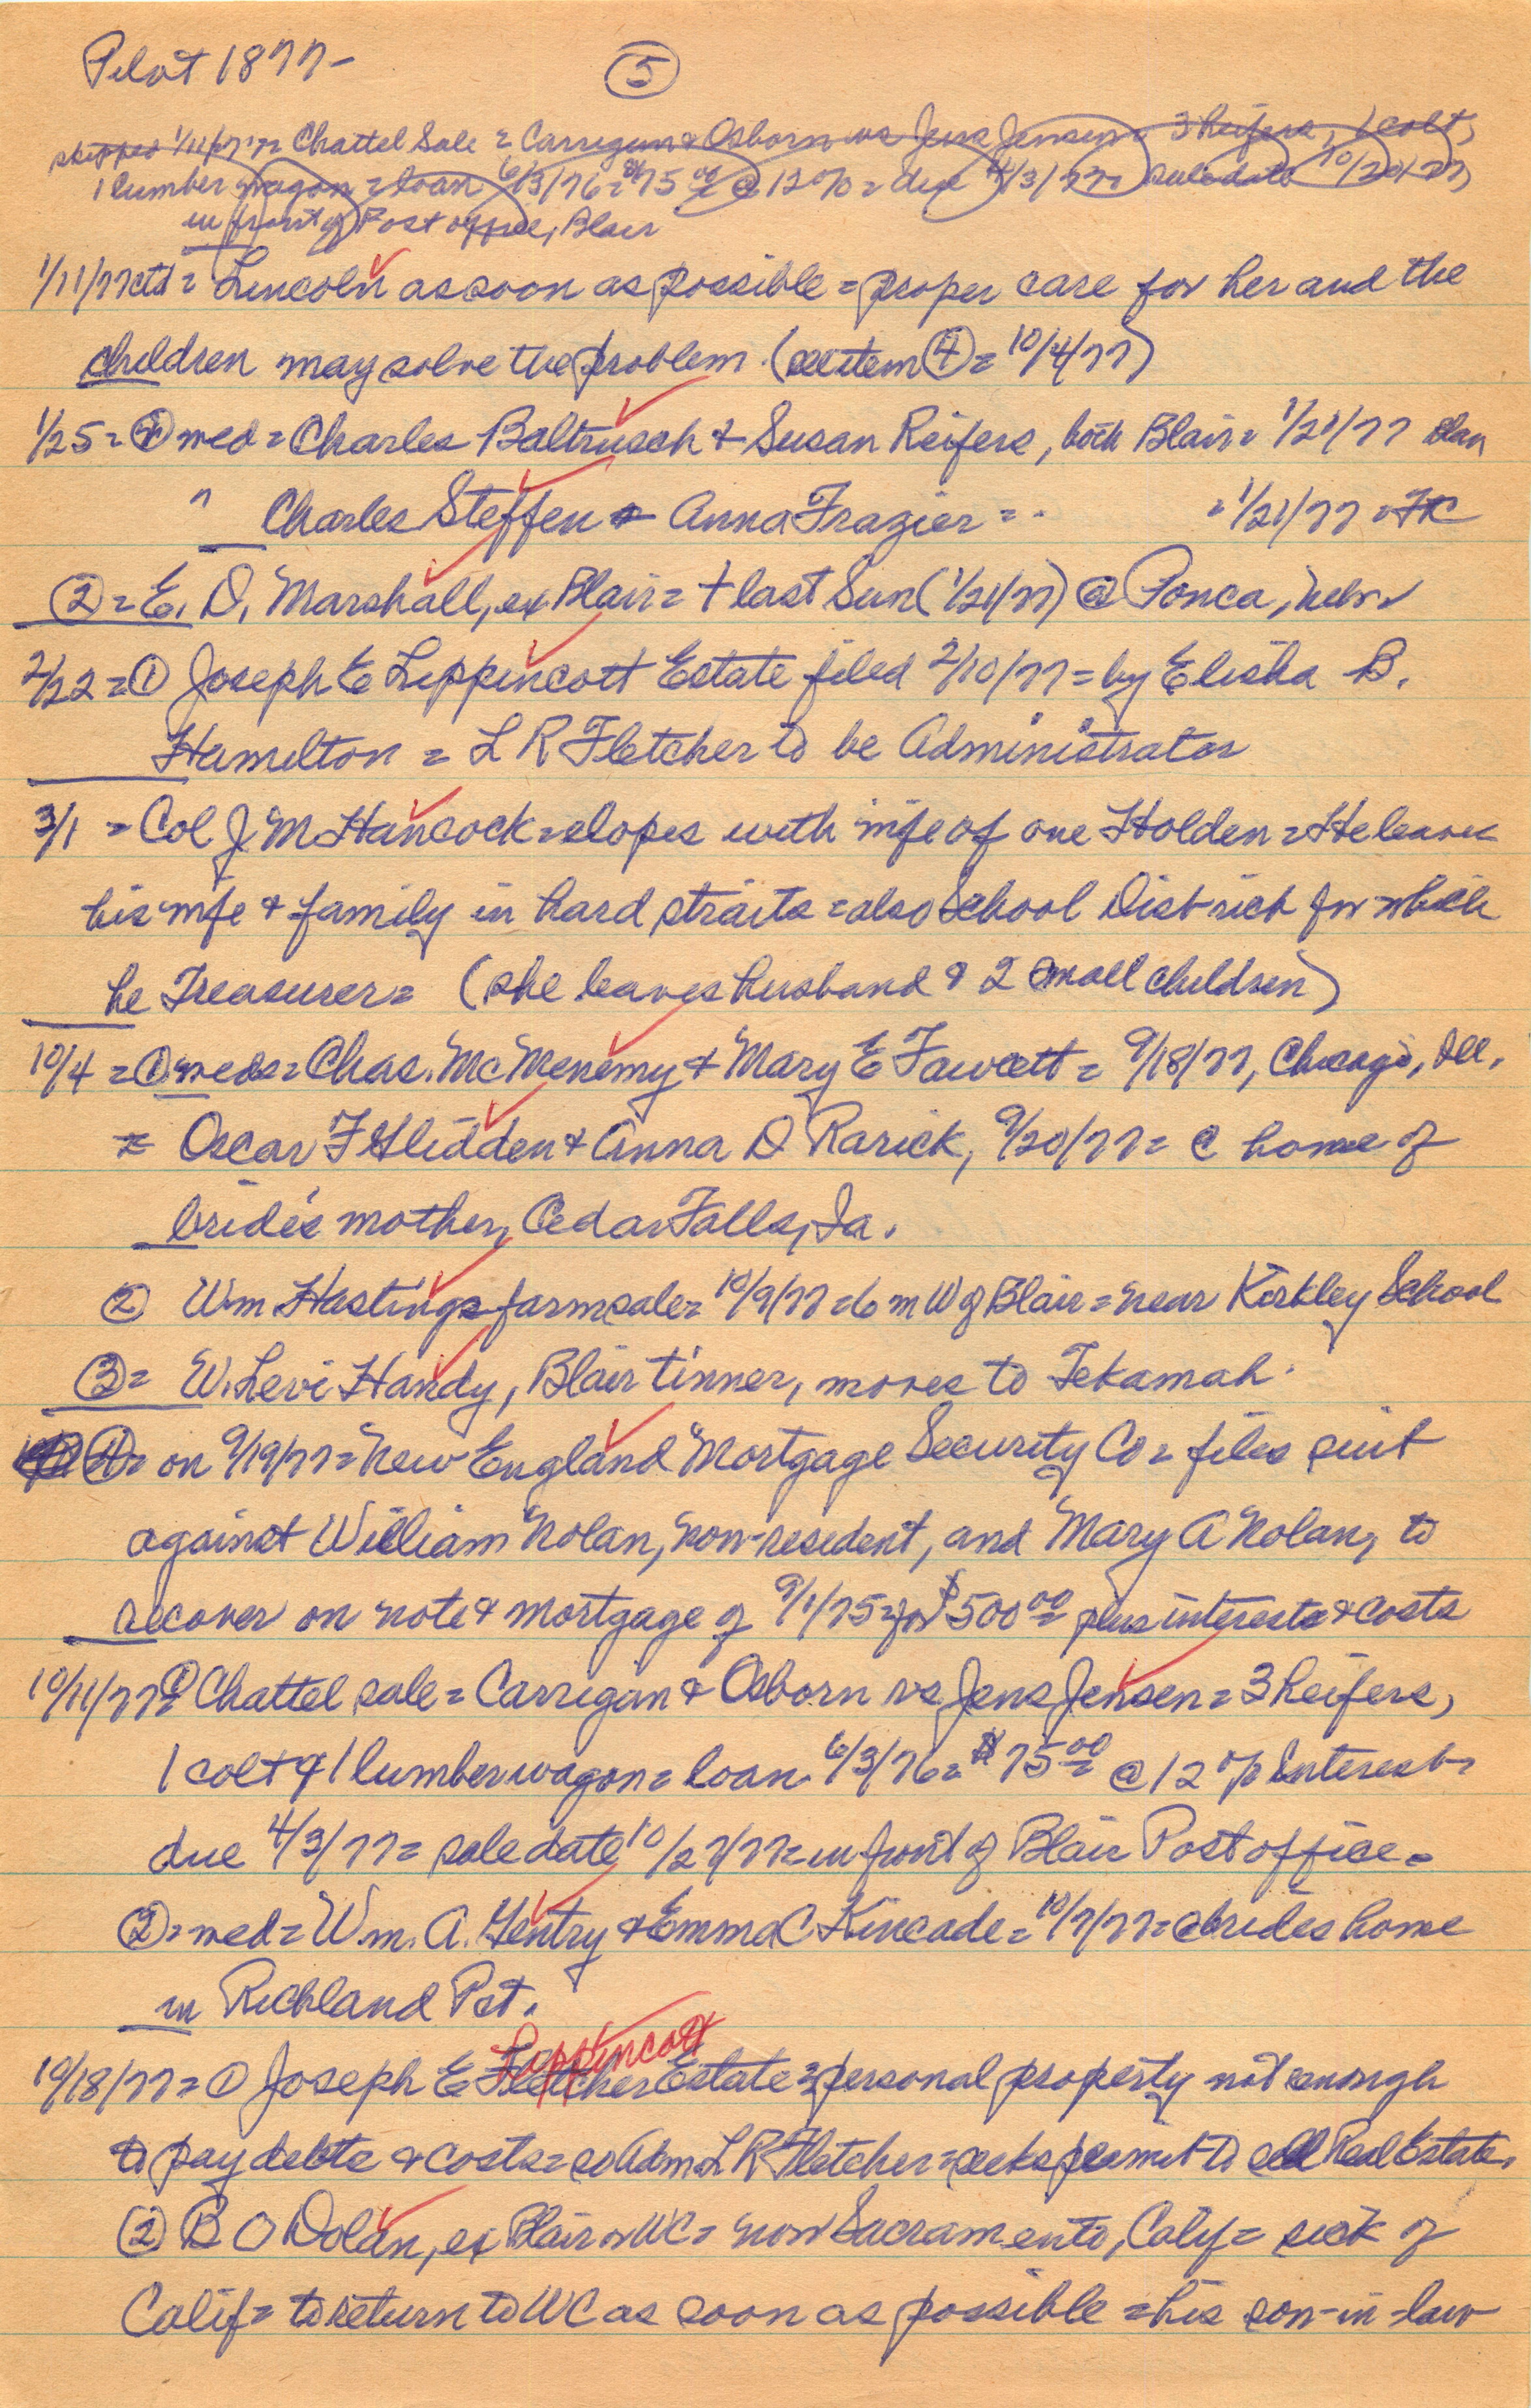 Pilot 1877- ⑤
skipped 1/11/77 = Chattel Sale = Carrigan & Osborn vs Jens Jensen = 3 heifers, 1 colt,
1 lumber wagon = loan 6/3/76 = $75.00 @ 12% = due 4/3/77 = sale date 10/27/77,
in front of Post office, Blair
1/11/77 ctd = Lincoln as soon as possible = proper care for her and the
children may solve the problem. (see item ④ = 10/4/77)
1/25 = ① wed = Charles Baltrusch & Susan Reifers, both Blair = 1/21/77
" Charles Steffen & Anna Frazier = " = 1/21/77 = FC
② = E. D. Marshall, ex Blair = † last Sun (1/21/77) @ Ponca, Nebr
2/22 = ① Joseph E Lippincott Estate filed 2/10/77 = by Elisha B.
Hamilton = L R Fletcher to be Administrator
3/1 = Col J M Hancock = elopes with wife of one Holden = He leaves
his wife & family in hard straits = also School District for which
he Treasurer = (she leaves husband & 2 small children)
10/4 = ① weds = Chas. McMenemy & Mary E Fawcett = 9/18/77, Chicago, Ill.
= Oscar F Glidden & Anna D Rarick, 9/20/77 = @ home of
bride's mother, Cedar Falls, Ia.
② Wm Hastings farm sale = 10/9/77 = 6 m W of Blair = near Kirkley School
③ = W. Levi Handy, Blair tinner, moves to Tekamah.
④ = on 9/19/77 = New England Mortgage Security Co = files suit
against William Nolan, non-resident, and Mary A Nolan, to
recover on note & mortgage of 9/1/75 = for $500.00 plus interests & costs
10/11/77 = ① Chattel sale = Carrigan & Osborn vs Jens Jensen = 3 heifers,
1 colt & 1 lumber wagon = loan 6/3/76 = $75.00 @ 12% interest =
due 4/3/77 = sale date 10/27/77 = in front of Blair Post office =
② = wed = Wm. A. Gentry & Emma C Kincade = 10/7/77 = @ brides home
in Richland Pct.
Lippincott
10/18/77 = ① Joseph E Fletcher Estate = personal property not enough
to pay debts & costs = so Adm L R Fletcher = seeks permit to sell Real Estate.
② B O Dolan, ex Blair & WC = now Sacramento, Calif = sick of
Calif = to return to WC as soon as possible = his son-in-law